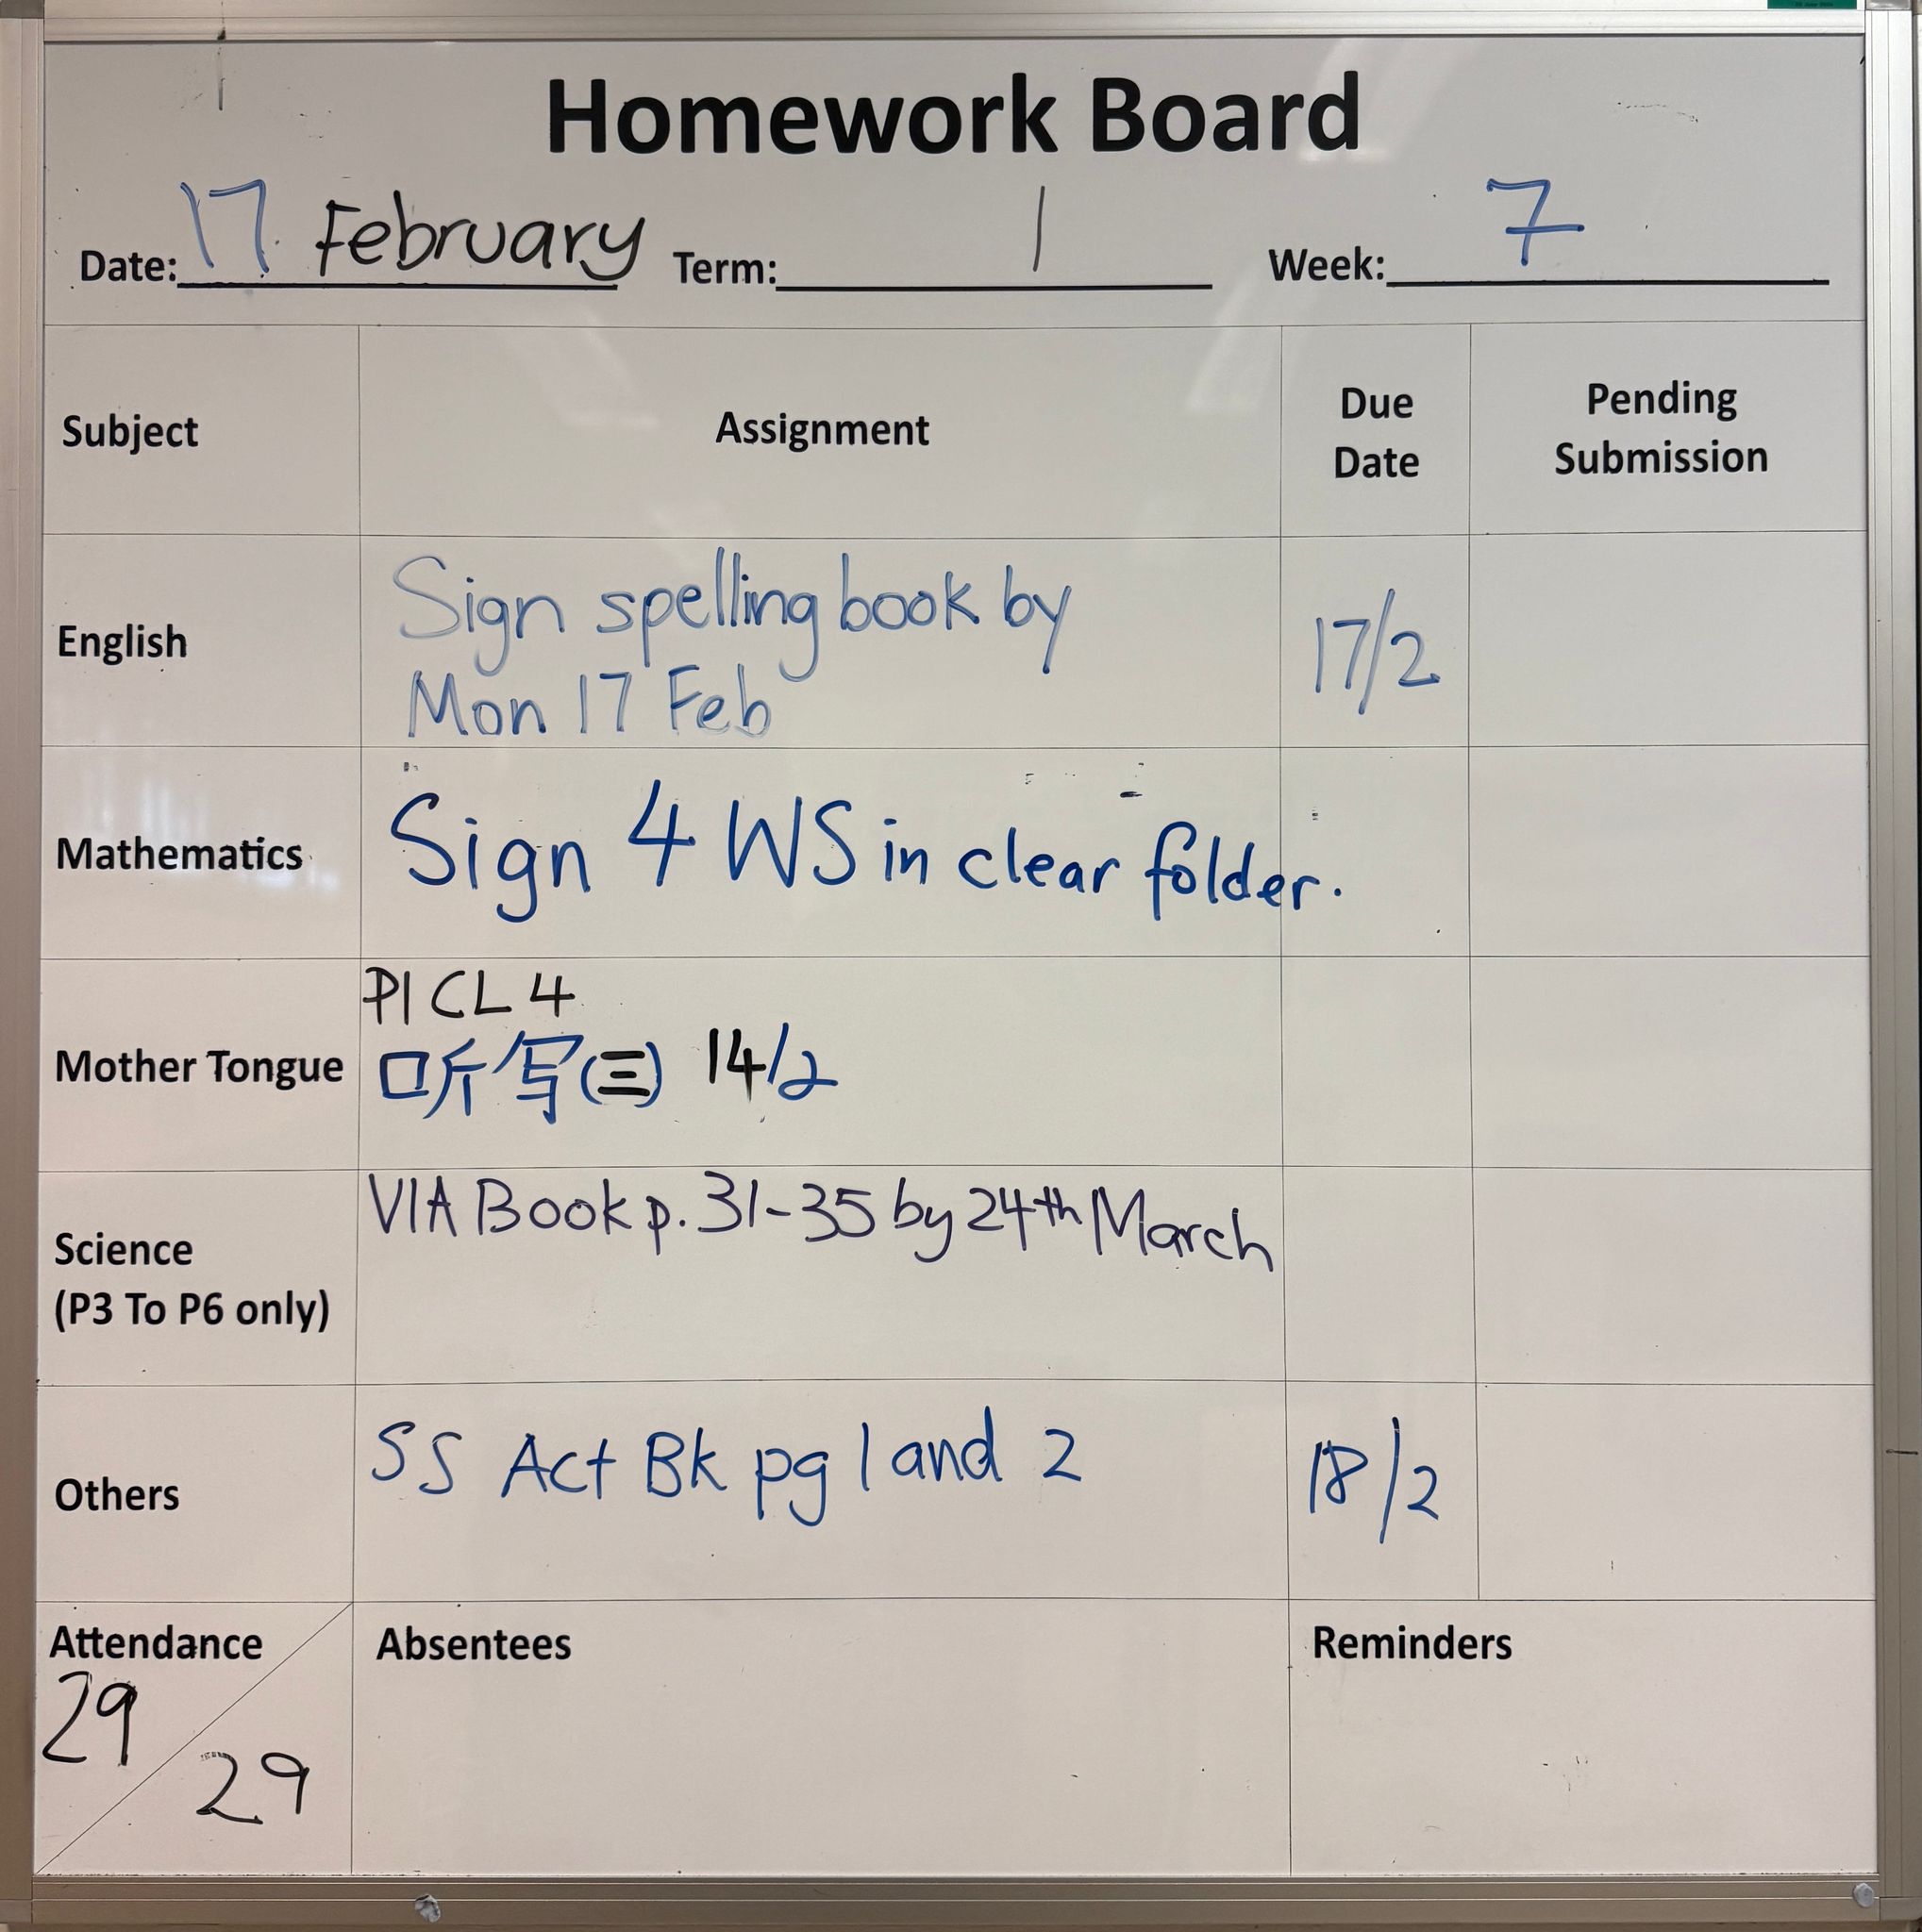 Homework Board
Date: 17 February Term: 1 Week: 7
Subject Assignment Due Date Pending Submission
English Sign spelling book by
Mon 17 Feb 17/2
Mathematics Sign 4 WS in clear folder.
P1 CL 4
Mother Tongue 听写(三) 14/2
VIA Book p. 31-35 by 24th March
Science
(P3 To P6 only)
Others SS Act Bk pg 1 and 2 18/2
Attendance Absentees Reminders
29
29